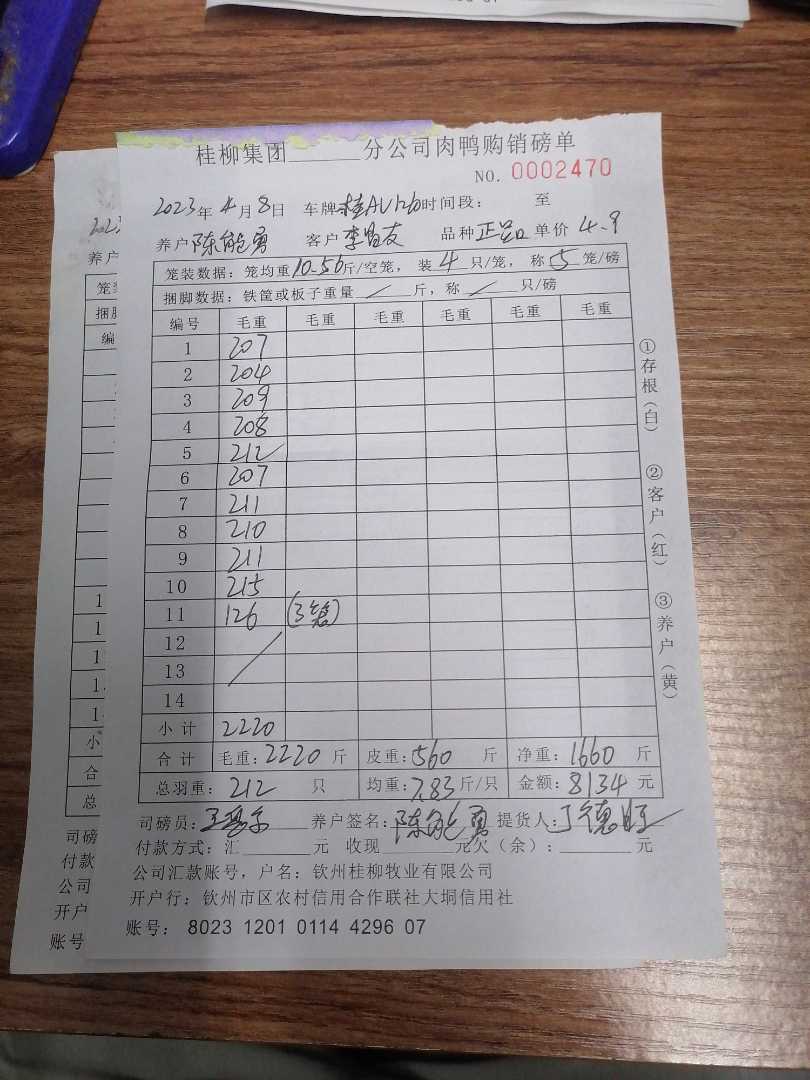 桂柳集团______分公司肉鸭购销磅单
NO. 0002470
2023年4月8日 车牌桂AU126时间段： 至
养户陈能勇 客户李昌友 品种正品 单价4.9
笼装数据：笼均重10.56斤/空笼，装4只/笼，称5笼/磅
捆脚数据：铁筐或板子重量/斤，称/只/磅
编号 毛重 毛重 毛重 毛重 毛重 毛重
1 207
2 204
3 209
4 208
5 212
6 207
7 211
8 210
9 211
10 215
11 126 (3笼)
12
13
14
小计 2220
合计 毛重：2220斤 皮重：560斤 净重：1660斤
总羽重：212只 均重：7.83斤/只 金额：8134元
司磅员： 养户签名：陈能勇 提货人：丁德旺
付款方式：汇______元 收现______元欠（余）：______元
公司汇款账号，户名：钦州桂柳牧业有限公司
开户行：钦州市区农村信用合作联社大垌信用社
账号： 8023 1201 0114 4296 07
①存根（白）
②客户（红）
③养户（黄）
202
养户
笼装
捆脚
编
1
1
1
1
1
小
合
总
司磅
付款
公司
开户
账号